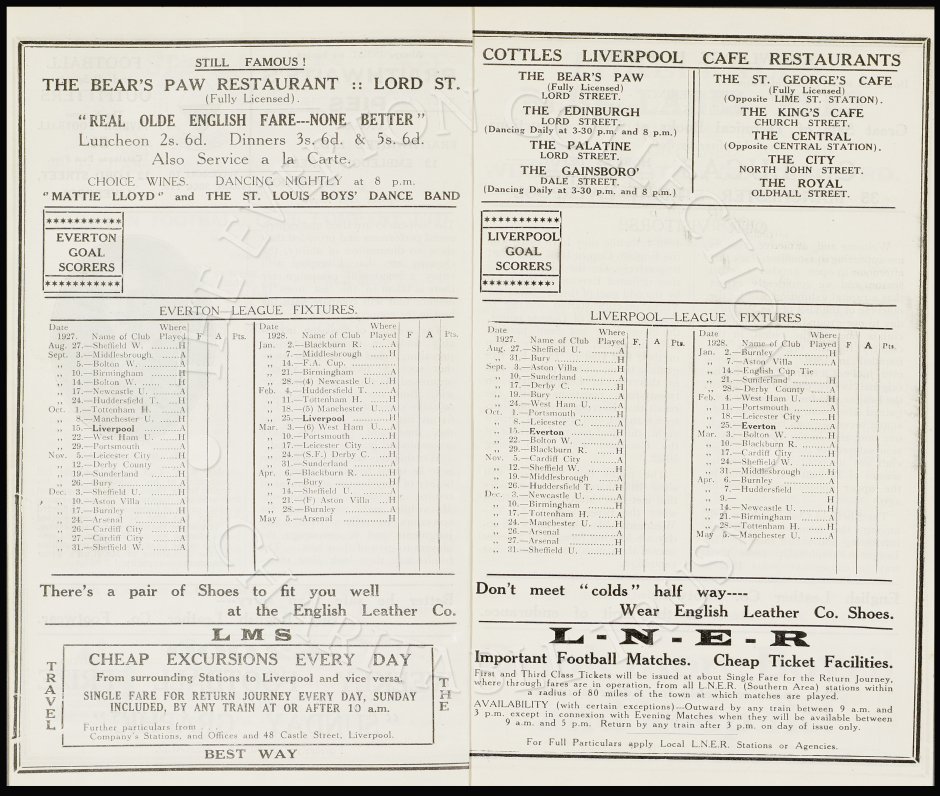 STILL FAMOUS!
THE BEAR'S PAW RESTAURANT :: LORD ST.
(Fully Licensed).
"REAL OLDE ENGLISH FARE---NONE BETTER"
Luncheon 2s. 6d. Dinners 3s. 6d. & 5s. 6d.
Also Service a la Carte.
CHOICE WINES. DANCING NIGHTLY at 8 p.m.
"MATTIE LLOYD" and THE ST. LOUIS BOYS' DANCE BAND
EVERTON
GOAL
SCORERS
EVERTON—LEAGUE FIXTURES.
Date Where
1927. Name of Club Played F A Pts.
Aug. 27.—Sheffield W. ........H
Sept. 3.—Middlesbrough......A
„ 5.—Bolton W. ............A
„ 10.—Birmingham ..........H
„ 14.—Bolton W. ............H
„ 17.—Newcastle U. .........A
„ 24.—Huddersfield T. ......H
Oct. 1.—Tottenham H. ........A
„ 8.—Manchester U. ........H
„ 15.—Liverpool ............A
„ 22.—West Ham U. ........H
„ 29.—Portsmouth ..........A
Nov. 5.—Leicester City ......H
„ 12.—Derby County ........A
„ 19.—Sunderland ..........H
„ 26.—Bury ................A
Dec. 3.—Sheffield U. ........H
„ 10.—Aston Villa ..........A
„ 17.—Burnley ..............H
„ 24.—Arsenal ..............A
„ 26.—Cardiff City ........H
„ 27.—Cardiff City ........A
„ 31.—Sheffield W. ........A
Date Where
1928. Name of Club Played F A Pts.
Jan. 2.—Blackburn R. ........A
„ 7.—Middlesbrough ......H
„ 14.—F.A. Cup..............
„ 21.—Birmingham ..........A
„ 28.—(4) Newcastle U. ...H
Feb. 4.—Huddersfield T. ....A
„ 11.—Tottenham H. ........H
„ 18.—(5) Manchester U....A
„ 25.—Liverpool ............H
Mar. 3.—(6) West Ham U....A
„ 10.—Portsmouth ..........H
„ 17.—Leicester City ......A
„ 24.—(S.F.) Derby C. ...H
„ 31.—Sunderland ..........A
Apr. 6.—Blackburn R. ........H
„ 7.—Bury ................H
„ 14.—Sheffield U. ........A
„ 21.—(F) Aston Villa ....H
„ 28.—Burnley ..............A
May 5.—Arsenal ..............H
There's a pair of Shoes to fit you well
at the English Leather Co.
LMS
TRAVEL
CHEAP EXCURSIONS EVERY DAY
From surrounding Stations to Liverpool and vice versa.
SINGLE FARE FOR RETURN JOURNEY EVERY DAY, SUNDAY
INCLUDED, BY ANY TRAIN AT OR AFTER 10 a.m.
Further particulars from
Company's Stations, and Offices and 48 Castle Street, Liverpool.
THE
BEST WAY
COTTLES LIVERPOOL CAFE RESTAURANTS
THE BEAR'S PAW
(Fully Licensed)
LORD STREET.
THE EDINBURGH
LORD STREET.
(Dancing Daily at 3-30 p.m. and 8 p.m.)
THE PALATINE
LORD STREET.
THE GAINSBORO'
DALE STREET.
(Dancing Daily at 3-30 p.m. and 8 p.m.)
THE ST. GEORGE'S CAFE
(Fully Licensed)
(Opposite LIME ST. STATION).
THE KING'S CAFE
CHURCH STREET.
THE CENTRAL
(Opposite CENTRAL STATION).
THE CITY
NORTH JOHN STREET.
THE ROYAL
OLDHALL STREET.
LIVERPOOL
GOAL
SCORERS
LIVERPOOL—LEAGUE FIXTURES
Date Where
1927. Name of Club Played F. A Pts.
Aug. 27.—Sheffield U. ........A
„ 31.—Bury ................H
Sept. 3.—Aston Villa ..........H
„ 10.—Sunderland ..........A
„ 17.—Derby C. ............H
„ 19.—Bury ................A
„ 24.—West Ham U. ........A
Oct. 1.—Portsmouth ..........H
„ 8.—Leicester C. ........A
„ 15.—Everton ..............H
„ 22.—Bolton W. ............A
„ 29.—Blackburn R. ........H
Nov. 5.—Cardiff City ........A
„ 12.—Sheffield W. ........H
„ 19.—Middlesbrough ......A
„ 26.—Huddersfield T. ....H
Dec. 3.—Newcastle U. ........A
„ 10.—Birmingham ..........H
„ 17.—Tottenham H. ........A
„ 24.—Manchester U. ......H
„ 26.—Arsenal ..............A
„ 27.—Arsenal ..............H
„ 31.—Sheffield U. ........H
Date Where
1928. Name of Club Played F A Pts.
Jan. 2.—Burnley ..............H
„ 7.—Aston Villa ..........A
„ 14.—English Cup Tie
„ 21.—Sunderland ..........H
„ 28.—Derby County ........A
Feb. 4.—West Ham U. ........H
„ 11.—Portsmouth ..........A
„ 18.—Leicester City ......H
„ 25.—Everton ..............A
Mar. 3.—Bolton W. ............H
„ 10.—Blackburn R. ........A
„ 17.—Cardiff City ........H
„ 24.—Sheffield W. ........A
„ 31.—Middlesbrough ......H
Apr. 6.—Burnley ..............A
„ 7.—Huddersfield ........A
„ 9.— H
„ 14.—Newcastle U. ........H
„ 21.—Birmingham ..........A
„ 28.—Tottenham H. ........H
May 5.—Manchester U. ......A
Don't meet "colds" half way----
Wear English Leather Co. Shoes.
L-N-E-R
Important Football Matches. Cheap Ticket Facilities.
First and Third Class Tickets will be issued at about Single Fare for the Return Journey,
where through fares are in operation, from all L.N.E.R. (Southern Area) stations within
a radius of 80 miles of the town at which matches are played.
AVAILABILITY (with certain exceptions)—Outward by any train between 9 a.m. and
3 p.m. except in connexion with Evening Matches when they will be available between
9 a.m. and 5 p.m. Return by any train after 3 p.m. on day of issue only.
For Full Particulars apply Local L.N.E.R. Stations or Agencies.